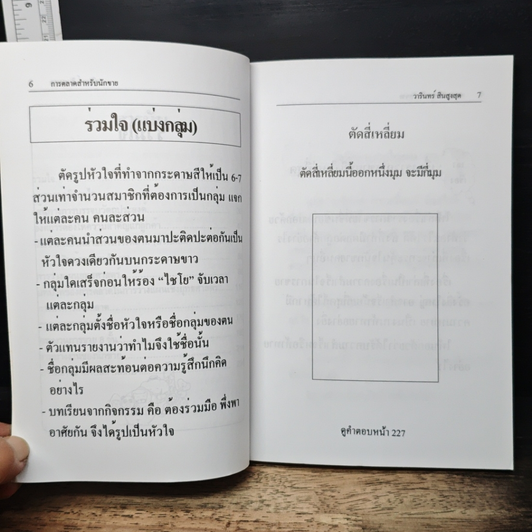 6 การตลาดสำหรับนักขาย
ร่วมใจ (แบ่งกลุ่ม)
ตัดรูปหัวใจที่ทำจากกระดาษสีให้เป็น 6-7
ส่วนเท่าจำนวนสมาชิกที่ต้องการเป็นกลุ่ม แจก
ให้แต่ละคน คนละส่วน
- แต่ละคนนำส่วนของตนมาปะติดปะต่อกันเป็น
หัวใจดวงเดียวกันบนกระดาษขาว
- กลุ่มใดเสร็จก่อนให้ร้อง “ไชโย” จับเวลา
แต่ละกลุ่ม
- แต่ละกลุ่มตั้งชื่อหัวใจหรือชื่อกลุ่มของตน
- ตัวแทนรายงานว่าทำไมจึงใช้ชื่อนั้น
- ชื่อกลุ่มมีผลสะท้อนต่อความรู้สึกนึกคิด
อย่างไร
- บทเรียนจากกิจกรรม คือ ต้องร่วมมือ พึ่งพา
อาศัยกัน จึงได้รูปเป็นหัวใจ
วารินทร์ สินสูงสุด 7
ตัดสี่เหลี่ยม
ตัดสี่เหลี่ยมนี้ออกหนึ่งมุม จะมีกี่มุม
ดูคำตอบหน้า 227